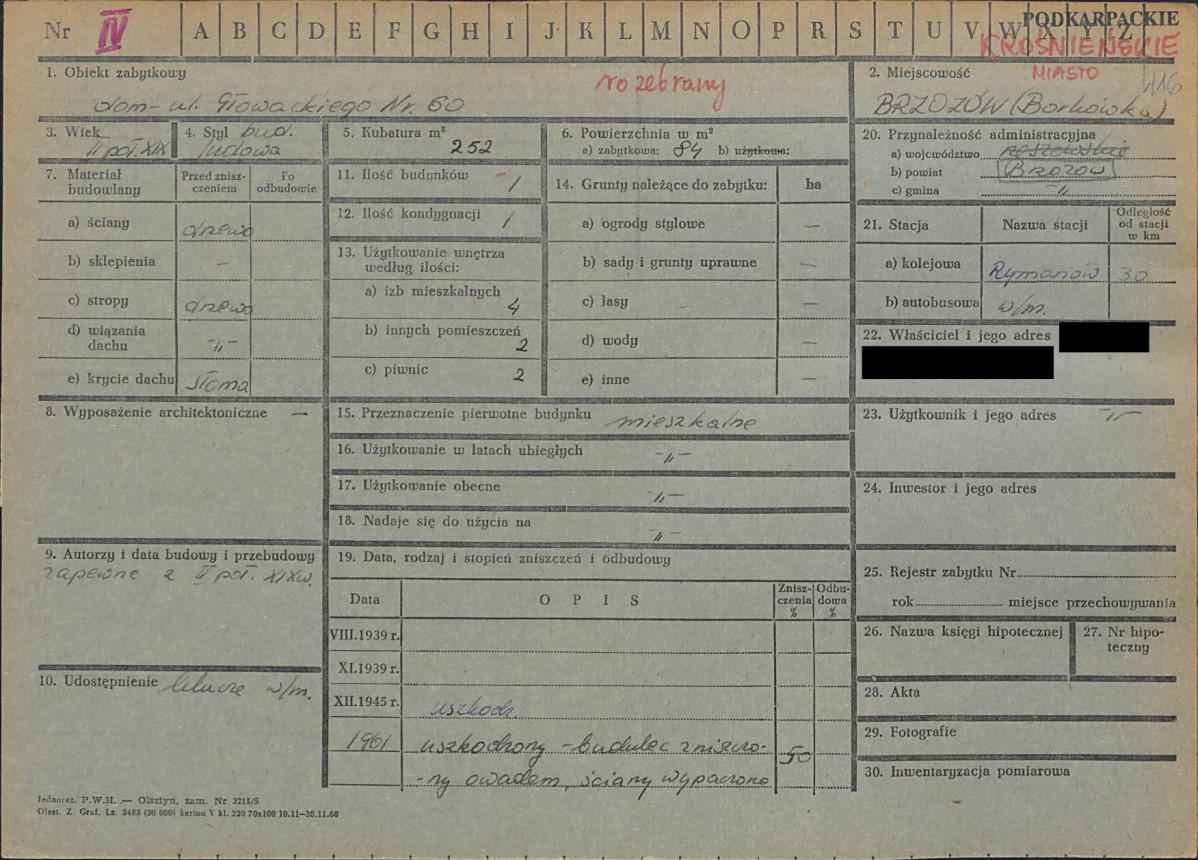 Nr IV A B C D E F G H I J K L M N O P R S T U V W X Y Z PODKARPACKIE
KROŚNIEŃSKIE
MIASTO 416
1. Obiekt zabytkowy rozebrany
dom – ul. Głowackiego Nr. 60
2. Miejscowość
BRZOZÓW (Borkówka)
3. Wiek
II poł. XIX
4. Styl bud.
ludowa
5. Kubatura m³
252
6. Powierzchnia w m²
a) zabytkowa: 84 b) użytkowa:
7. Materiał budowlany
Przed znisz-
czeniem
Po
odbudowie
a) ściany drzewo
b) sklepienia —
c) stropy drzewo
d) wiązania
dachu -„-
e) krycie dachu słoma
8. Wyposażenie architektoniczne —
9. Autorzy i data budowy i przebudowy
zapewne z II poł. XIX w.
10. Udostępnienie w/m.
11. Ilość budynków 1
12. Ilość kondygnacji 1
13. Użytkowanie wnętrza
według ilości:
a) izb mieszkalnych 4
b) innych pomieszczeń 2
c) piwnic 2
14. Grunty należące do zabytku: ha
a) ogrody stylowe —
b) sady i grunty uprawne —
c) lasy —
d) wody —
e) inne —
15. Przeznaczenie pierwotne budynku mieszkalne
16. Użytkowanie w latach ubiegłych -„-
17. Użytkowanie obecne -„-
18. Nadaje się do użycia na -„-
19. Data, rodzaj i stopień zniszczeń i odbudowy
Data O P I S Znisz-
czenia
% Odbu-
dowa
%
VIII.1939 r.
XI.1939 r.
XII.1945 r. uszkodz.
1961 uszkodzony – budulec zniszczo-
-ny owadem, ściany wypaczone 50
20. Przynależność administracyjna
a) województwo rzeszowskie
b) powiat Brzozów
c) gmina -„-
21. Stacja Nazwa stacji Odległość
od stacji
w km
a) kolejowa Rymanów 30
b) autobusowa w/m.
22. Właściciel i jego adres
23. Użytkownik i jego adres -„-
24. Inwestor i jego adres
25. Rejestr zabytku Nr
rok miejsce przechowywania
26. Nazwa księgi hipotecznej
27. Nr hipo-
teczny
28. Akta
29. Fotografie
30. Inwentaryzacja pomiarowa
Jednoraz. P.W.H. — Olsztyn, zam. Nr 3215/S
Olszt. Z. Graf. Lz. 2485 (30 000) karton V kl. 220 70x100 10.11—30.11.60